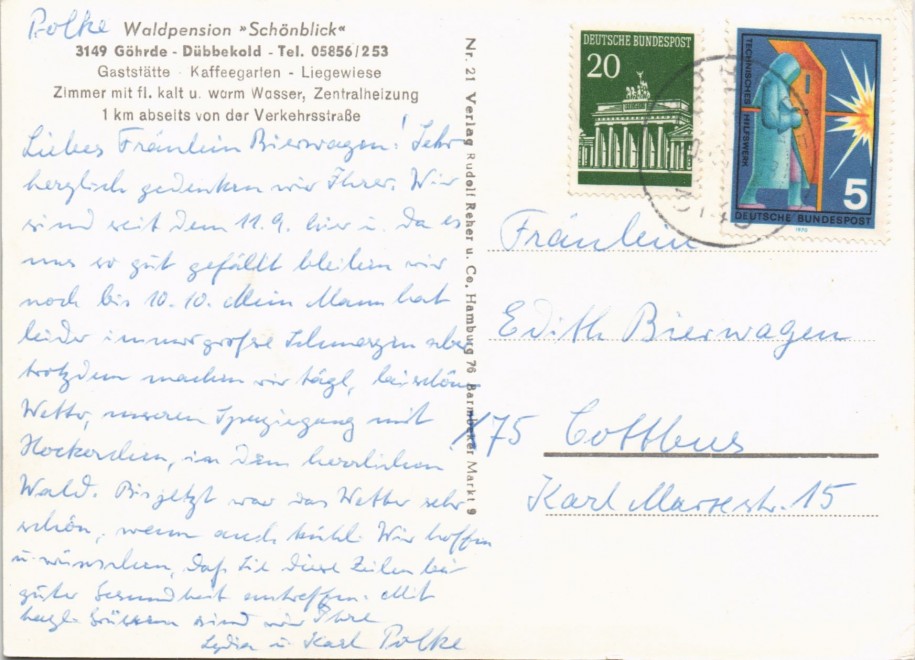 Polke Waldpension »Schönblick«
3149 Göhrde - Dübbekold - Tel. 05856/253
Gaststätte · Kaffeegarten - Liegewiese
Zimmer mit fl. kalt u. warm Wasser, Zentralheizung
1 km abseits von der Verkehrsstraße
Liebes Fräulein Bierwagen! Sehr
herzlich gedenken wir Ihrer. Wir
sind seit dem 11.9. hier u. da es
uns so gut gefällt bleiben wir
noch bis 10.10. Mein Mann hat
leider immer große Schmerzen aber
trotzdem machen wir tägl, bei schönem
Wetter, unseren Spaziergang mit
Hockerchen, in dem herrlichen
Wald. Bis jetzt war das Wetter sehr
schön, wenn auch kühl. Wir hoffen
u. wünschen, daß Sie diese Zeilen bei
guter Gesundheit antreffen. Mit
herzl. Grüssen sind wir Ihre
Lydia u. Karl Polke
Nr. 21 Verlag Rudolf Reher u. Co. Hamburg 76 Barmbeker Markt 9
DEUTSCHE BUNDESPOST
20
TECHNISCHES HILFSWERK
5
DEUTSCHE BUNDESPOST
1970
Fräulein
Edith Bierwagen
X75 Cottbus
Karl Marxstr. 15